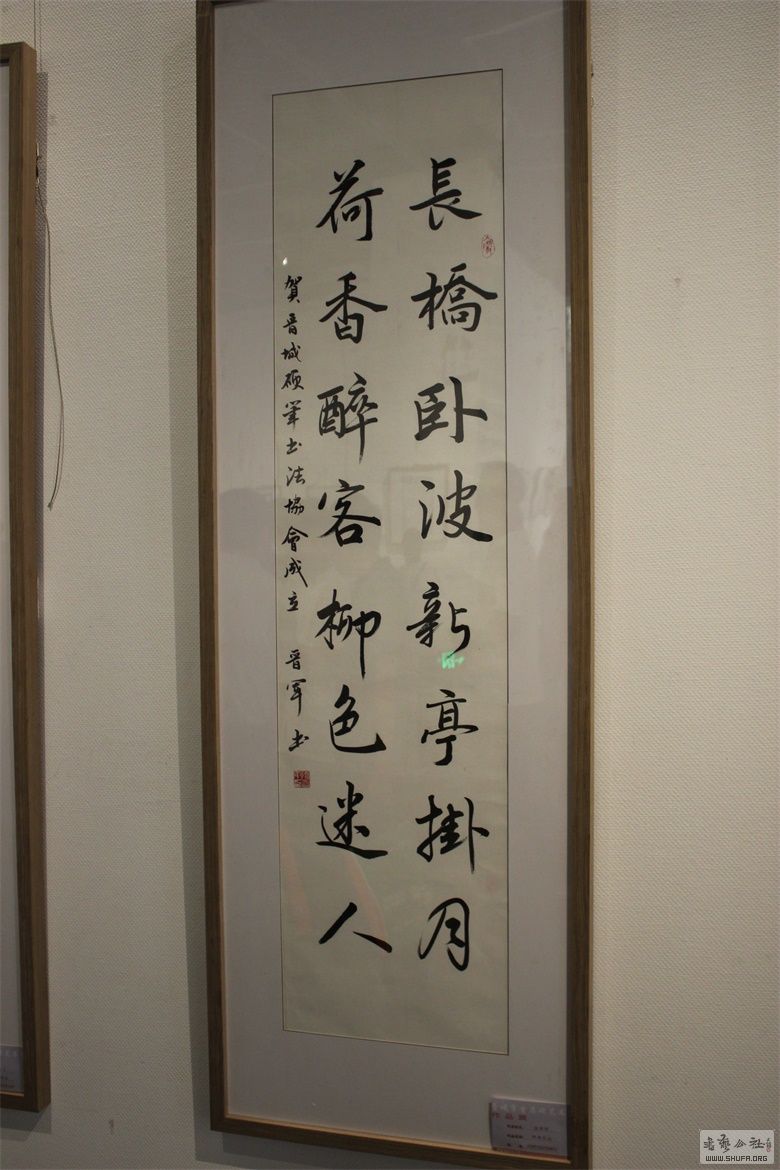 長橋卧波新亭掛月
荷香醉客柳色迷人
賀晋城硕筆书法協會成立 晋军书
作品展
书艺公社
WWW.SHUFA.ORG